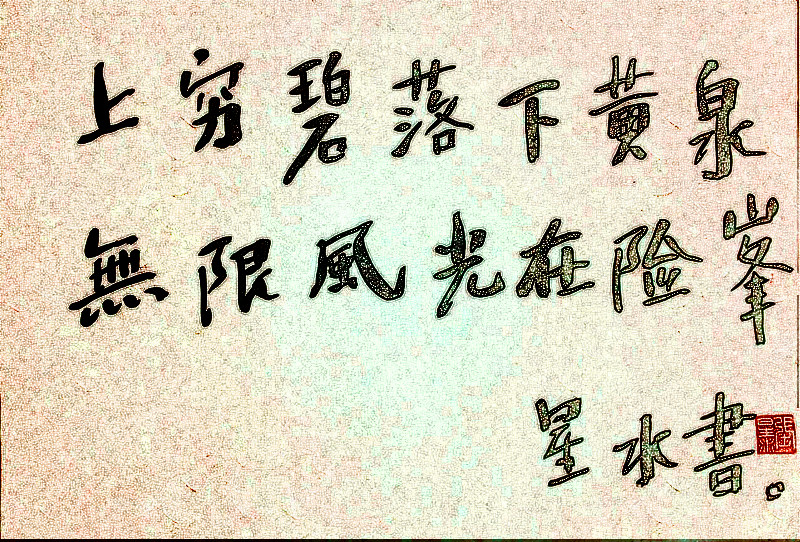 上穷碧落下黄泉
無限風光在险峯
星水書。